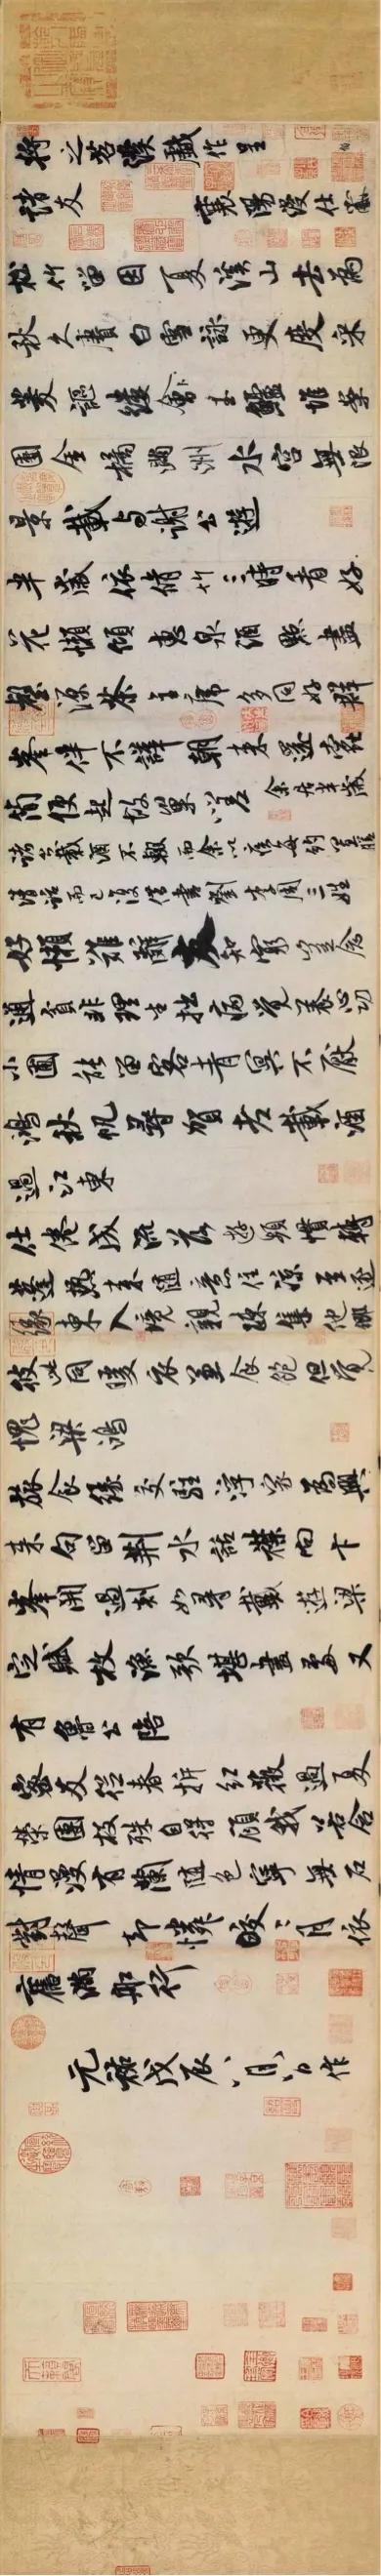 將之苕溪戲作呈
諸友 襄陽漫仕黻
松竹留因夏溪山去為
秋久賡白雪詠更度采
菱謳縷會玉鱸堆案
團金橘滿洲水宮無限
景載與謝公遊
半歲依修竹三時看好
花懶傾惠泉酒點盡
壑源茶主席多同好群
峯伴不譁朝來還蠹
簡便起故巢嗟 余居半歲
諸公載酒不輟而余以疾每約置膳
清話而已復借書劉李周三姓
好懶難辭友知窮豈念
通貧非理生拙病覺養心功
小圃能留客青冥不厭
鴻秋帆尋賀老載酒
過江東
仕倦成流落遊頻慣轉
蓬熱來隨意住涼至逐
緣東入境親疎集他鄉
彼此同暖衣兼食飽但覺
愧梁鴻
旅食緣交駐浮家為興
來句留荊水話襟向卞
峯開過剡如尋戴遊梁
定賦枚漁歌堪畫處又
有魯公陪
密友從春拆紅薇過夏
榮團枝殊自得顧我若含
情漫有蘭隨色寧無石
對聲却憐皎皎月依
舊滿船行
元祐戊辰八月八日作